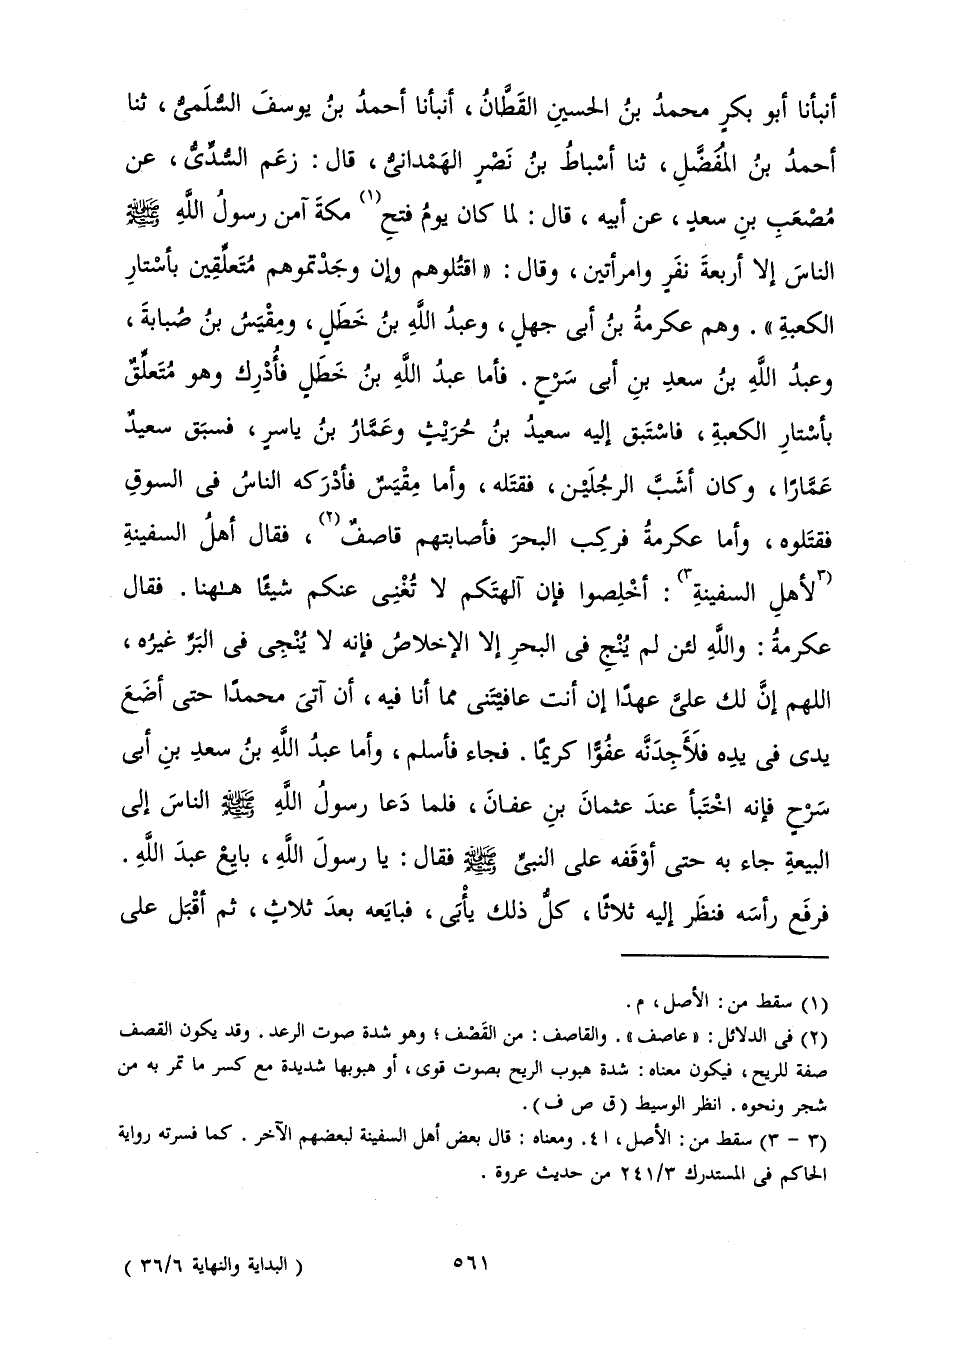 أنبأنا أبو بكرٍ محمدُ بنُ الحسينِ القَطَّانُ، أنبأنا أحمدُ بنُ يوسفَ السُّلَمىُّ، ثنا
أحمدُ بنُ المُفَضَّلِ، ثنا أسْباطُ بنُ نَصْرٍ الهَمْدانىُّ، قال: زعَم السُّدِّىُّ، عن
مُصْعَبِ بنِ سعدٍ، عن أبيه، قال: لما كان يومُ فتحِ(١) مكةَ آمن رسولُ اللَّهِ ﷺ
الناسَ إلا أربعةَ نفَرٍ وامرأتين، وقال: «اقتُلوهم وإن وجَدْتموهم مُتَعلِّقِين بأسْتارِ
الكعبةِ». وهم عكرمةُ بنُ أبى جهلٍ، وعبدُ اللَّهِ بنُ خَطَلٍ، ومِقْيَسُ بنُ صُبابةَ،
وعبدُ اللَّهِ بنُ سعدِ بنِ أبى سَرْحٍ. فأما عبدُ اللَّهِ بنُ خَطَلٍ فأُدْرِك وهو مُتَعلِّقٌ
بأسْتارِ الكعبةِ، فاسْتَبق إليه سعيدُ بنُ حُرَيْثٍ وعَمَّارُ بنُ ياسرٍ، فسبَق سعيدٌ
عَمَّارًا، وكان أشَبَّ الرجُلَيْن، فقتَله، وأما مِقْيَسٌ فأدْرَكه الناسُ فى السوقِ
فقتَلوه، وأما عكرمةُ فركِب البحرَ فأصابتهم قاصفٌ(٢)، فقال أهلُ السفينةِ
(٣لأهلِ السفينةِ٣): أخْلِصوا فإن آلهتَكم لا تُغْنِى عنكم شيئًا هـٰهنا. فقال
عكرمةُ: واللَّهِ لئن لم يُنْجِ فى البحرِ إلا الإخلاصُ فإنه لا يُنْجِى فى البَرِّ غيرُه،
اللهم إنَّ لك علىَّ عهدًا إن أنت عافيْتَنى مما أنا فيه، أن آتىَ محمدًا حتى أضَعَ
يدى فى يدِه فلَأَجِدَنَّه عفُوًّا كريمًا. فجاء فأسلم، وأما عبدُ اللَّهِ بنُ سعدِ بنِ أبى
سَرْحٍ فإنه اخْتَبأ عندَ عثمانَ بنِ عفانَ، فلما دَعا رسولُ اللَّهِ ﷺ الناسَ إلى
البيعةِ جاء به حتى أوْقَفه على النبىِّ ﷺ فقال: يا رسولَ اللَّهِ، بايِعْ عبدَ اللَّهِ.
فرفَع رأسَه فنظَر إليه ثلاثًا، كلُّ ذلك يأْبَى، فبايَعه بعدَ ثلاثٍ، ثم أقْبَل على
(١) سقط من: الأصل، م.
(٢) فى الدلائل: «عاصف». والقاصف: من القَصْف؛ وهو شدة صوت الرعد. وقد يكون القصف
صفة للريح، فيكون معناه: شدة هبوب الريح بصوت قوى، أو هبوبها شديدة مع كسر ما تمر به من
شجر ونحوه. انظر الوسيط (ق ص ف).
(٣ - ٣) سقط من: الأصل، ٤١. ومعناه: قال بعض أهل السفينة لبعضهم الآخر. كما فسرته رواية
الحاكم فى المستدرك ٢٤١/٣ من حديث عروة.
٥٦١
(البداية والنهاية ٣٦/٦)